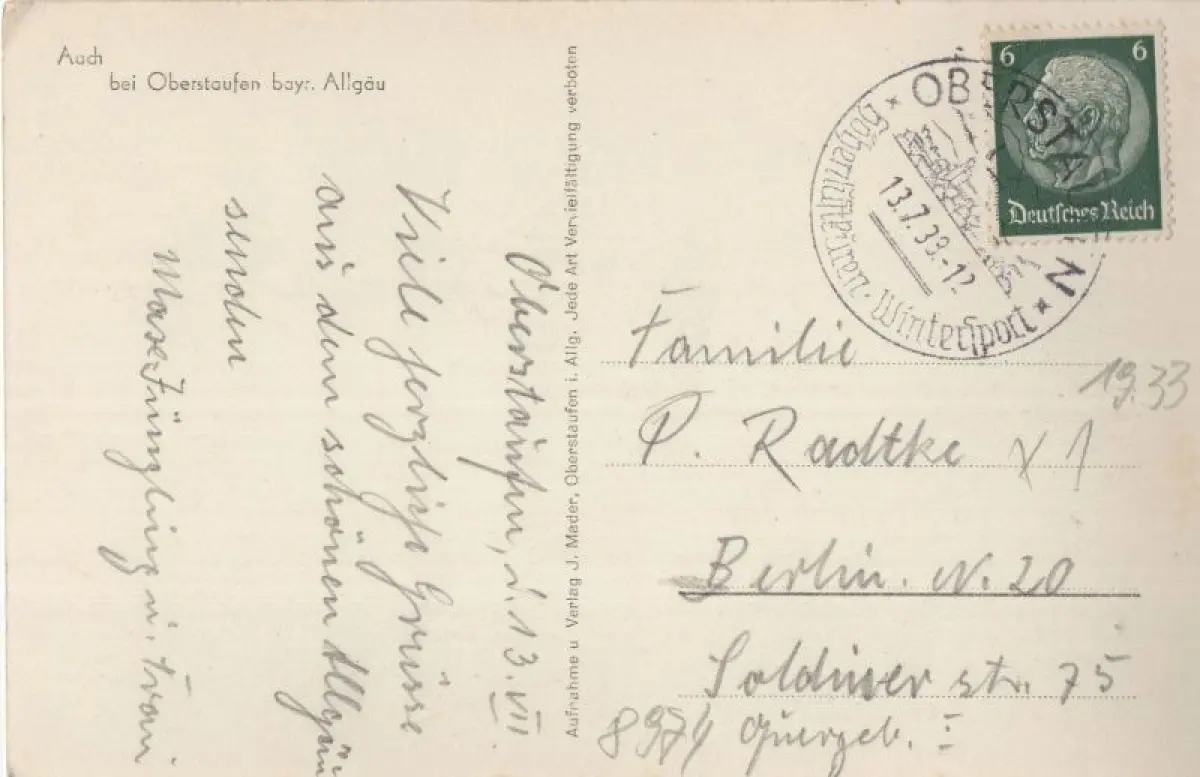 Aach
bei Oberstaufen bayr. Allgäu
Oberstaufen, d. 13. VII
Viele herzliche Grüsse
aus dem schönen Allgäu
senden
Max Jüngling u. Frau
Aufnahme u Verlag J. Mader, Oberstaufen i. Allg. Jede Art Vervielfältigung verboten
6 6
Deutsches Reich
OBERSTAUFEN
Höhenluftkurort
Wintersport
13.7.38.-12
Familie
19.33
P. Radtke
1
Berlin. N. 20
Soldiner str. 75
8974 Quergeb. I